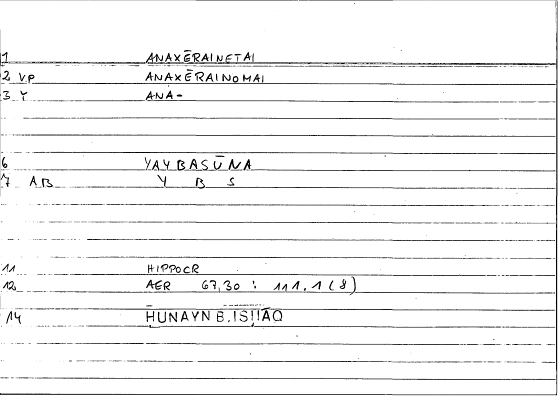 1 ANAXĒRAINETAI
2 VP ANAXĒRAINOMAI
3 Y ANA-
6 YAYBASŪNA
7 AB Y B S
11 HIPPOCR
12 AER 67,30 : 111,1 (8)
14 ḤUNAYN B. ISḤĀQ